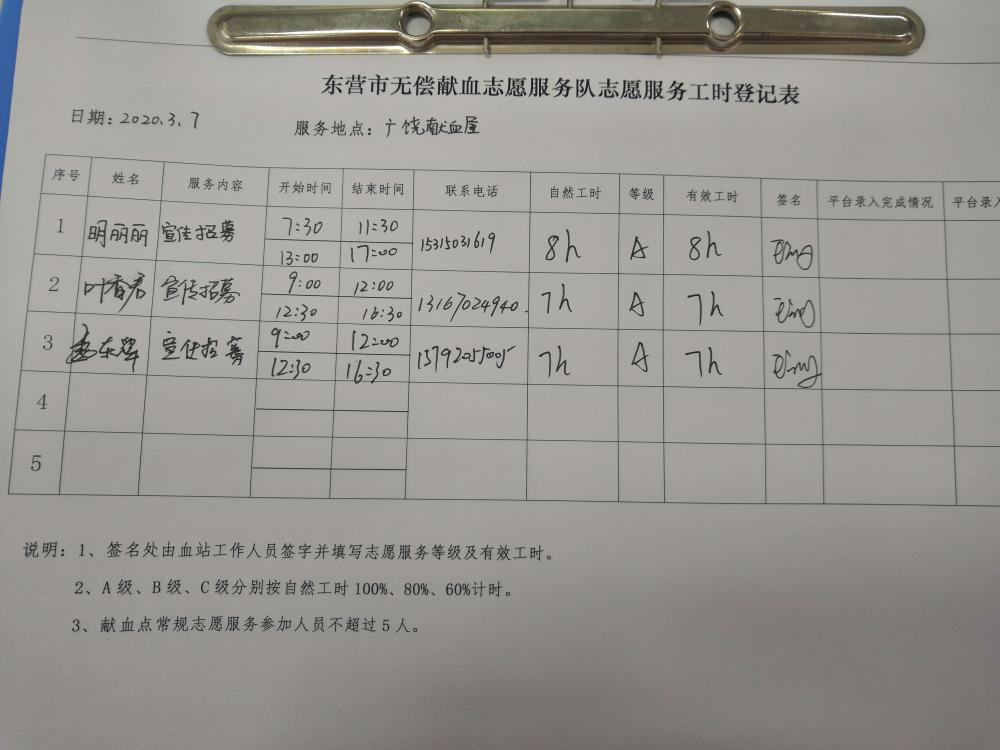 东营市无偿献血志愿服务队志愿服务工时登记表
日期：2020.3.7 服务地点：广饶献血屋
序号 姓名 服务内容 开始时间 结束时间 联系电话 自然工时 等级 有效工时 签名 平台录入完成情况 平台录入
1 明丽丽 宣传招募 7:30 11:30 15315031619 8h A 8h
13:00 17:00
2 叶香君 宣传招募 9:00 12:00 13167024940. 7h A 7h
12:30 16:30
3 宣传招募 9:00 12:00 15792055005 7h A 7h
12:30 16:30
4
5
说明：1、签名处由血站工作人员签字并填写志愿服务等级及有效工时。
2、A 级、B 级、C 级分别按自然工时 100%、80%、60%计时。
3、献血点常规志愿服务参加人员不超过 5 人。